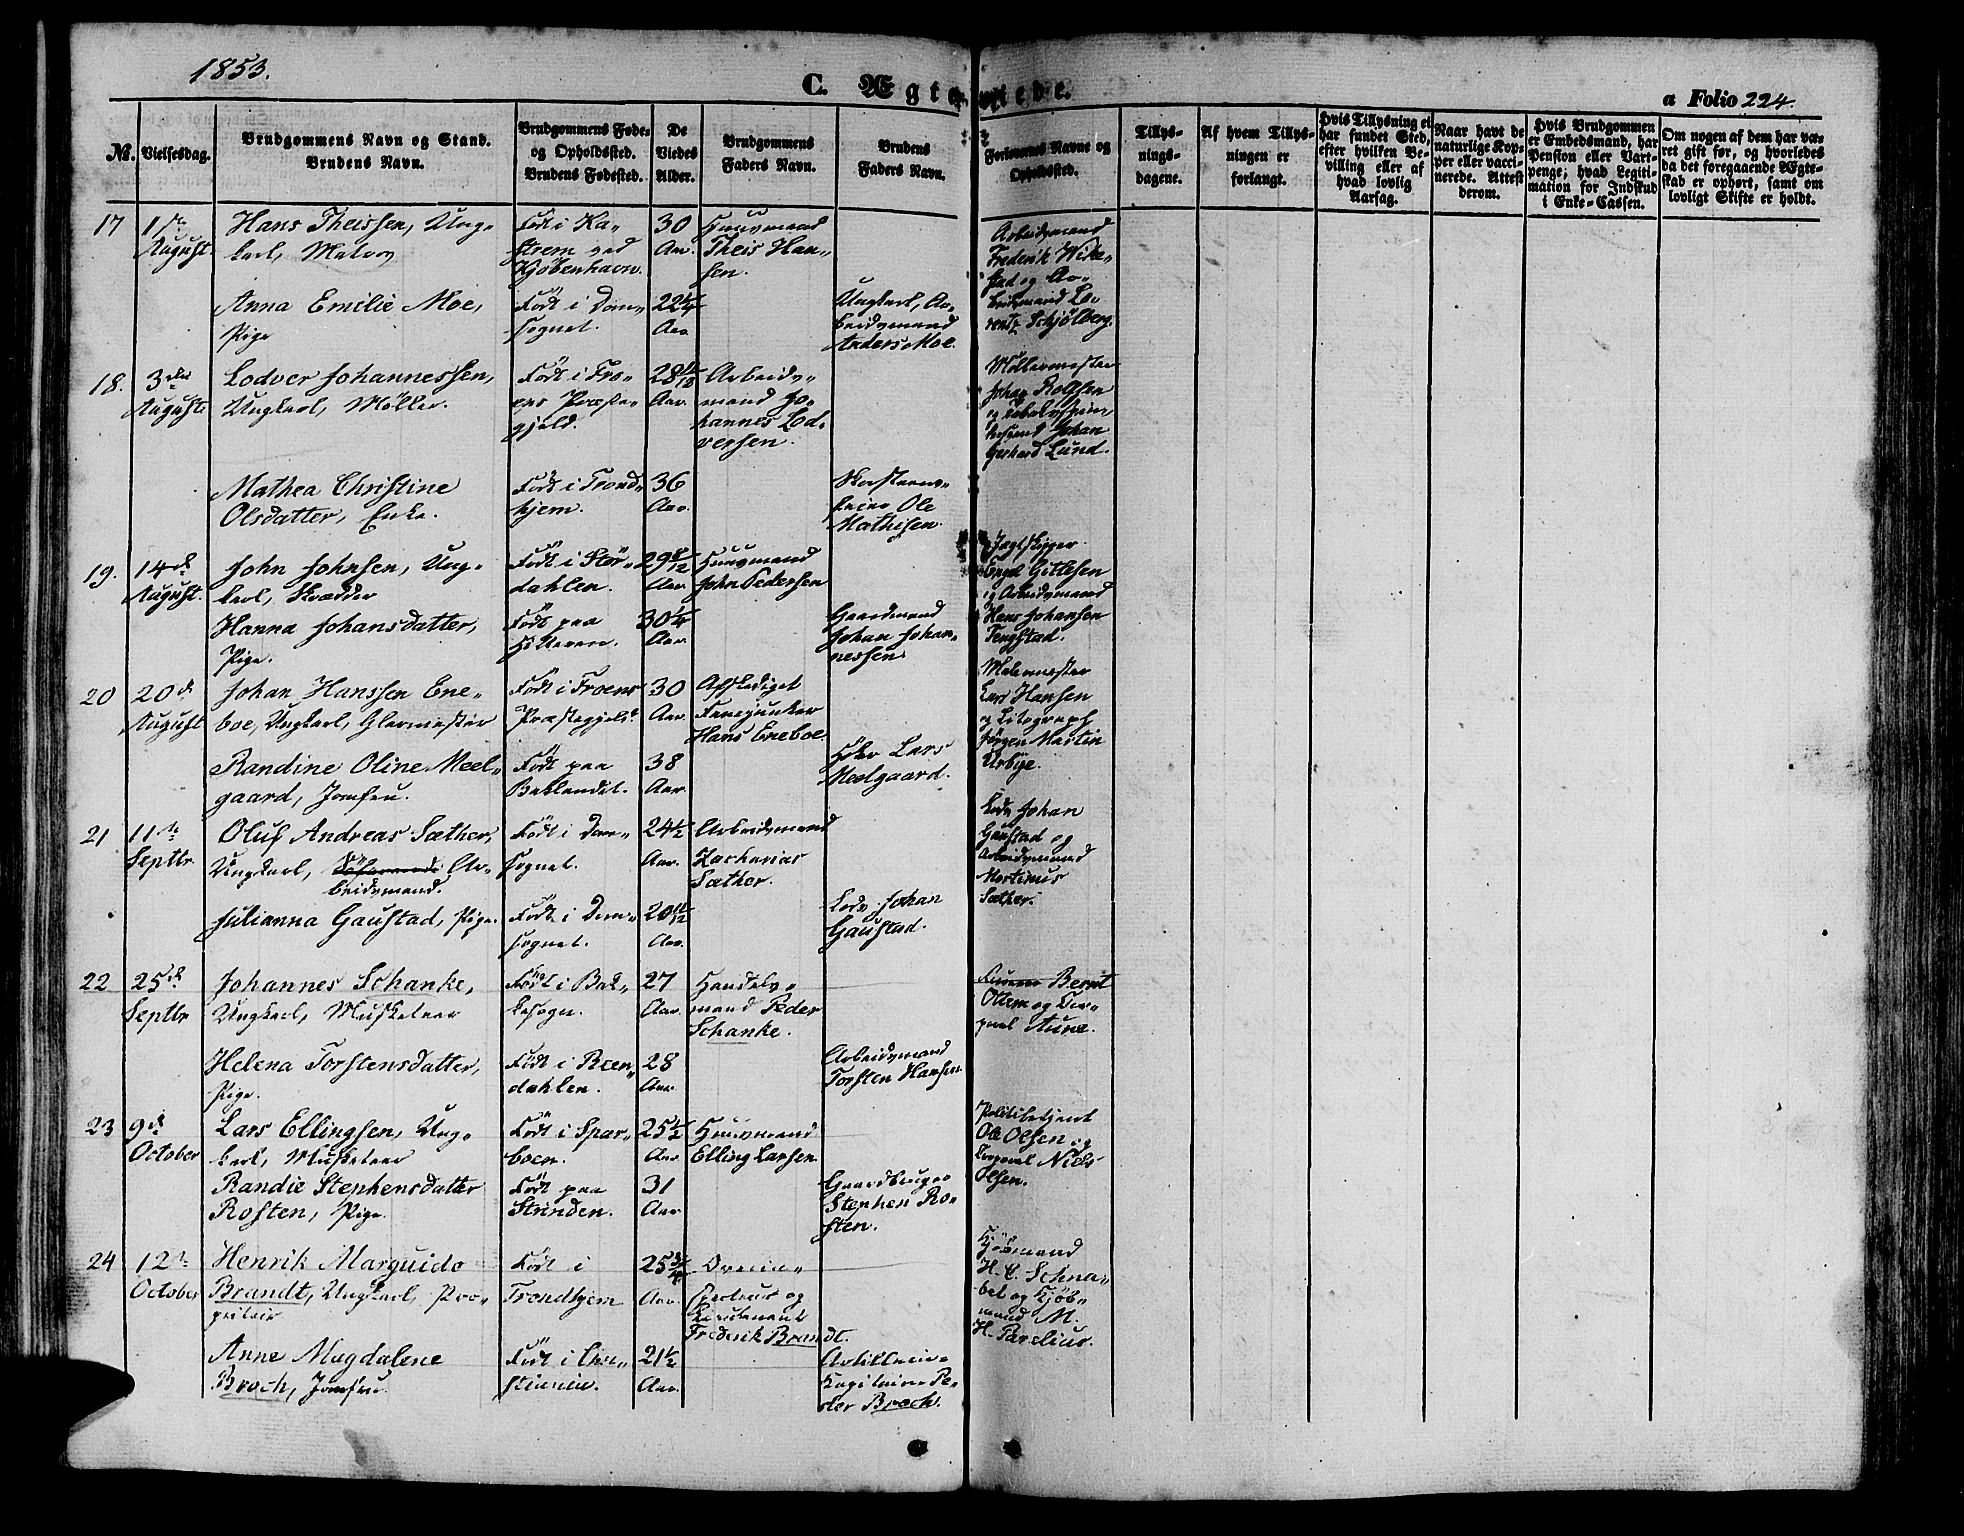 1853.
C. Ægteviede.
a Folio 224.
No.
Vielsesdag.
Brudgommens Navn og Stand.
Brudens Navn.
Brudgommens Føde-
og Opholdssted.
Brudens Fødested.
De
Viedes
Alder.
Brudgommens
Faders Navn.
Brudens
Faders Navn.
Forlovernes Navne og
Opholdssted.
Tillys-
nings-
dagene.
Af hvem Tillys-
ningen er
forlangt.
Hvis Tillysning ei
har fundet Sted,
efter hvilken Be-
villing eller af
hvad lovlig
Aarsag.
Naar havt de
naturlige Kop-
per eller vacci-
nerede. Attest
derom.
Hvis Brudgommen
er Embedsmand, har
Pension eller Vart-
penge; hvad Legiti-
mation for Indskud
i Enke-Cassen.
Om nogen af dem har væ-
ret gift før, og hvorledes
da det foregaaende Ægte-
skab er ophørt, samt om
lovligt Skifte er holdt.
17
August.
Hans Theissen, Ung-
karl, Matros
Født i Ka-
strem ved
Kjøbenhavn.
30
Aar.
Huusmand
Theis Han-
sen.
Arbeidsmand
Frederik
og Ar-
beidsmand Lo-
rentz Schjølberg.
Anna Emilie Moe,
Pige
Født i Dom-
sognet.
22 1/4
Aar.
Ungkarl, Ar-
beidsmand
Anders Moe.
18.
3die
August
Lodver Johannessen,
Ungkarl, Møller.
Født i Fro-
ens Præste-
gjeld.
28
Aar.
Arbeids-
mand Jo-
hannes Lod-
versen.
Møllermester
Johan Rolfsen
og
Johan
Gerhard Lund.
Mathea Christine
Olsdatter, Enke.
Født i Trond-
hjem.
36
Aar.
Skorsteens-
feier Ole
Mathisen.
19.
14de
August.
John Johnsen, Ung-
karl, Skrædder
Født i Stør-
dahlen.
29 8/12
Aar.
Huusmand
John Pedersen
Jagtskipper
Engel Gitlesen
og Arbeidsmand
Hans Johansen
Tengstad.
Hanna Johansdatter,
Pige.
Født paa
Hitteren.
30 1/4
Aar.
Gaardmand
Johan Johan-
nessen.
20
20de
August
Johan Hanssen Ene-
boe, Ungkarl, Glarmester
Født i Froens
Præstegjeld.
30
Aar.
Afskediget
Fanejunker
Hans Eneboe.
Malermester
Lars Hansen
og Litograph
Jørgen Martin
Urbye.
Randine Oline Meel-
gaard, Jomfru.
Født paa
Baklandet.
38
Aar.
Lars
Meelgaard.
21
11te
Septbr.
Oluf Andreas Sæther,
Ungkarl, Søfarende Ar-
beidsmand.
Født i Dom-
sognet.
24 1/2
Aar.
Arbeidsmand
Zacharias
Sæther.
Lods Johan
Gaustad og
Arbeidsmand
Martinus
Sæther.
Julianna Gaustad, Pige.
Født i Dom-
sognet.
20 11/12
Aar.
Lods Johan
Gaustad.
22
25de
Septbr
Johannes Schanke,
Ungkarl, Musketeer
Født i Bak-
kesogn.
27
Aar.
Handels-
mand Peder
Schanke.
Bernt
Ottem og Cor-
poral Aune.
Helena Torstensdatter,
Pige.
Født i Reen-
dahlen.
28
Aar.
Arbeidsmand
Torsten Hansen
23
9de
October
Lars Ellingsen, Ung-
karl, Musketeer
Født i Spar-
boen.
25 1/2
Aar
Huusmand
Elling Larsen
Politibetjent
Ole Olsen og
Corporal Niels
Olsen.
Randie Stephensdatter
Rosten, Pige.
Født paa
Strinden.
31
Aar.
Gaardbruger
Stephen Ro-
sten.
24
12te
October
Henrik Marguido
Brandt, Ungkarl, Pro-
prietair
Født i
Trondhjem
25 3/4
Aar.
og
Lieutenant
Frederik Brandt.
Kjøbmand
H. C. Schna-
bel og Kjøb-
mand M.
H. Parelius.
Anne Magdalene
Broch, Jomfru.
Født i Chri-
stiania.
21 1/2
Aar.
Artillerie-
Kapitaine Pe-
der Broch.